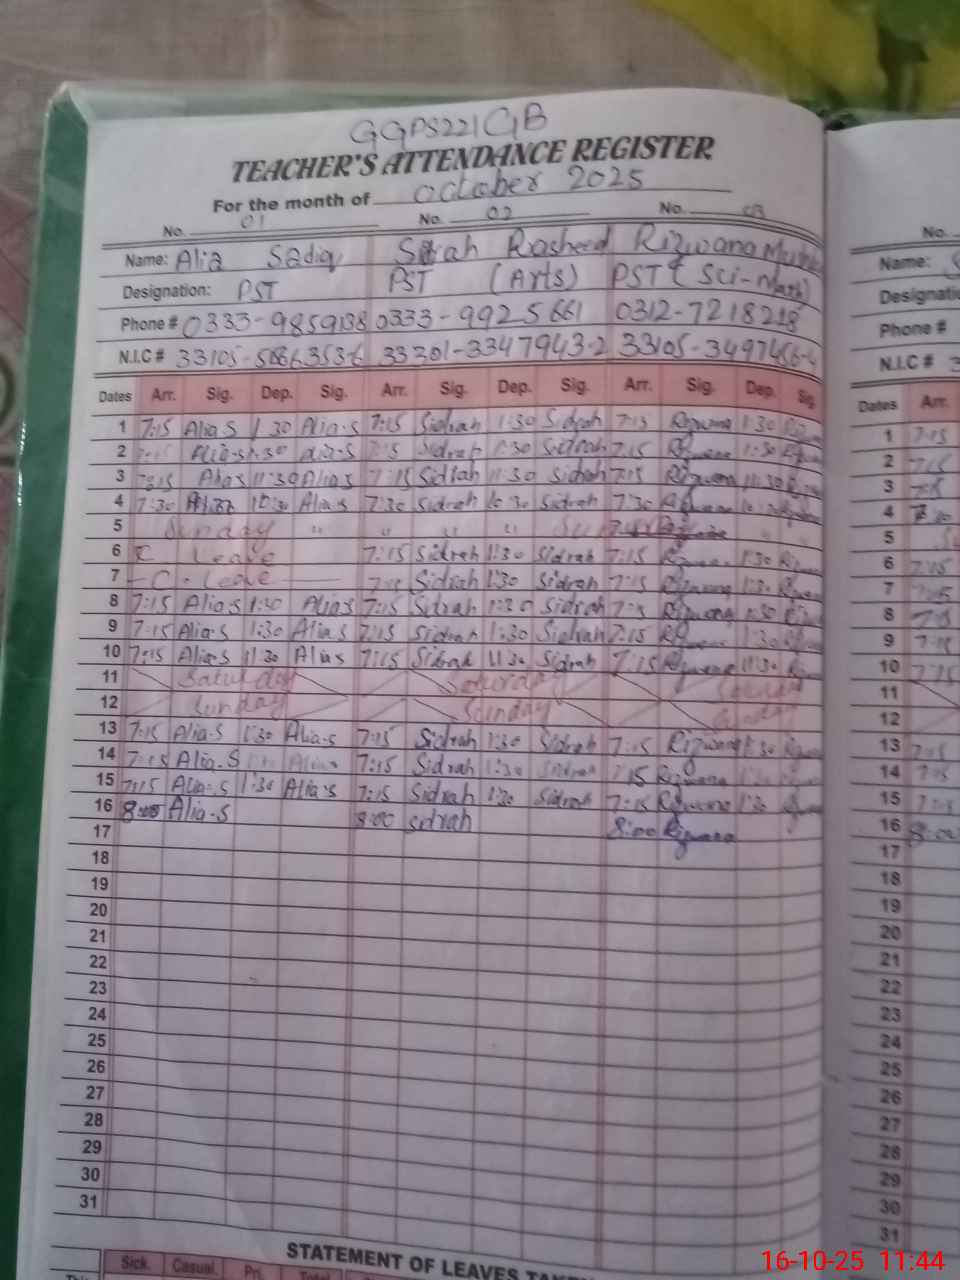 GGPS221GB
TEACHER'S ATTENDANCE REGISTER
For the month of October 2025
No. 01 No. 02 No. 03
Name: Alia Sadiq Sidrah Rasheed Rizwana
Designation: PST PST (Arts) PST (Sci-Math)
Phone # 0333-9859138 0333-9925661 0312-7218218
N.I.C # 33301-3347943-2
Dates Arr. Sig. Dep. Sig. Arr. Sig. Dep. Sig. Arr. Sig. Dep. Sig
1 7:15 Alia-S 1:30 Alia-S 7:15 Sidrah 1:30 Sidrah 7:15 Rizwana 1:30
2 Alia-S 1:30 Alia-S 7:15 Sidrah 1:30 Sidrah 7:15 Rizwana 1:30
3 7:15 Alias 11:30 Alias 7:15 Sidrah 11:30 Sidrah 7:15 Rizwana 11:30
4 7:30 10:30 Alias 7:30 Sidrah 10:30 Sidrah 7:30 Rizwana
5 Sunday " " "
6 C Leave 7:15 Sidrah 1:30 Sidrah 7:15 1:30
7 C. Leave Sidrah 1:30 Sidrah 7:15 Rizwana 1:30
8 7:15 Alia-S 1:30 Alias 7:15 Sidrah 1:30 Sidrah 7:15 Rizwana 1:30
9 7:15 Alia-S 1:30 Alia-S 7:15 Sidrah 1:30 Sidrah 7:15 1:30
10 7:15 Alia-S 11:30 Alias 7:15 Sidrah 11:30 Sidrah 7:15 Rizwana 11:30
11 Saturday Saturday
12 Sunday Sunday Sunday
13 7:15 Alia-S 1:30 Alia-S 7:15 Sidrah 1:30 Sidrah 7:15 Rizwana 1:30
14 7:15 Alia-S 7:15 Sidrah 1:30 Sidrah 7:15 Rizwana
15 7:15 Alia-S 1:30 Alia-S 7:15 Sidrah 1:30 Sidrah 7:15 Rizwana 1:30
16 8:00 Alia-S 8:00 Sidrah 8:00 Rizwana
17
18
19
20
21
22
23
24
25
26
27
28
29
30
31
STATEMENT OF LEAVES
Sick. Casual. Pri. Total
No.
Name:
Phone #
N.I.C #
Dates Arr.
1 7:15
2 7:15
3 7:15
4
5
6 7:15
7
8
9 7:15
10 7:15
11
12
13 7:15
14 7:15
15
16 8:00
17
18
19
20
21
22
23
24
25
26
27
28
29
30
31
16-10-25 11:44